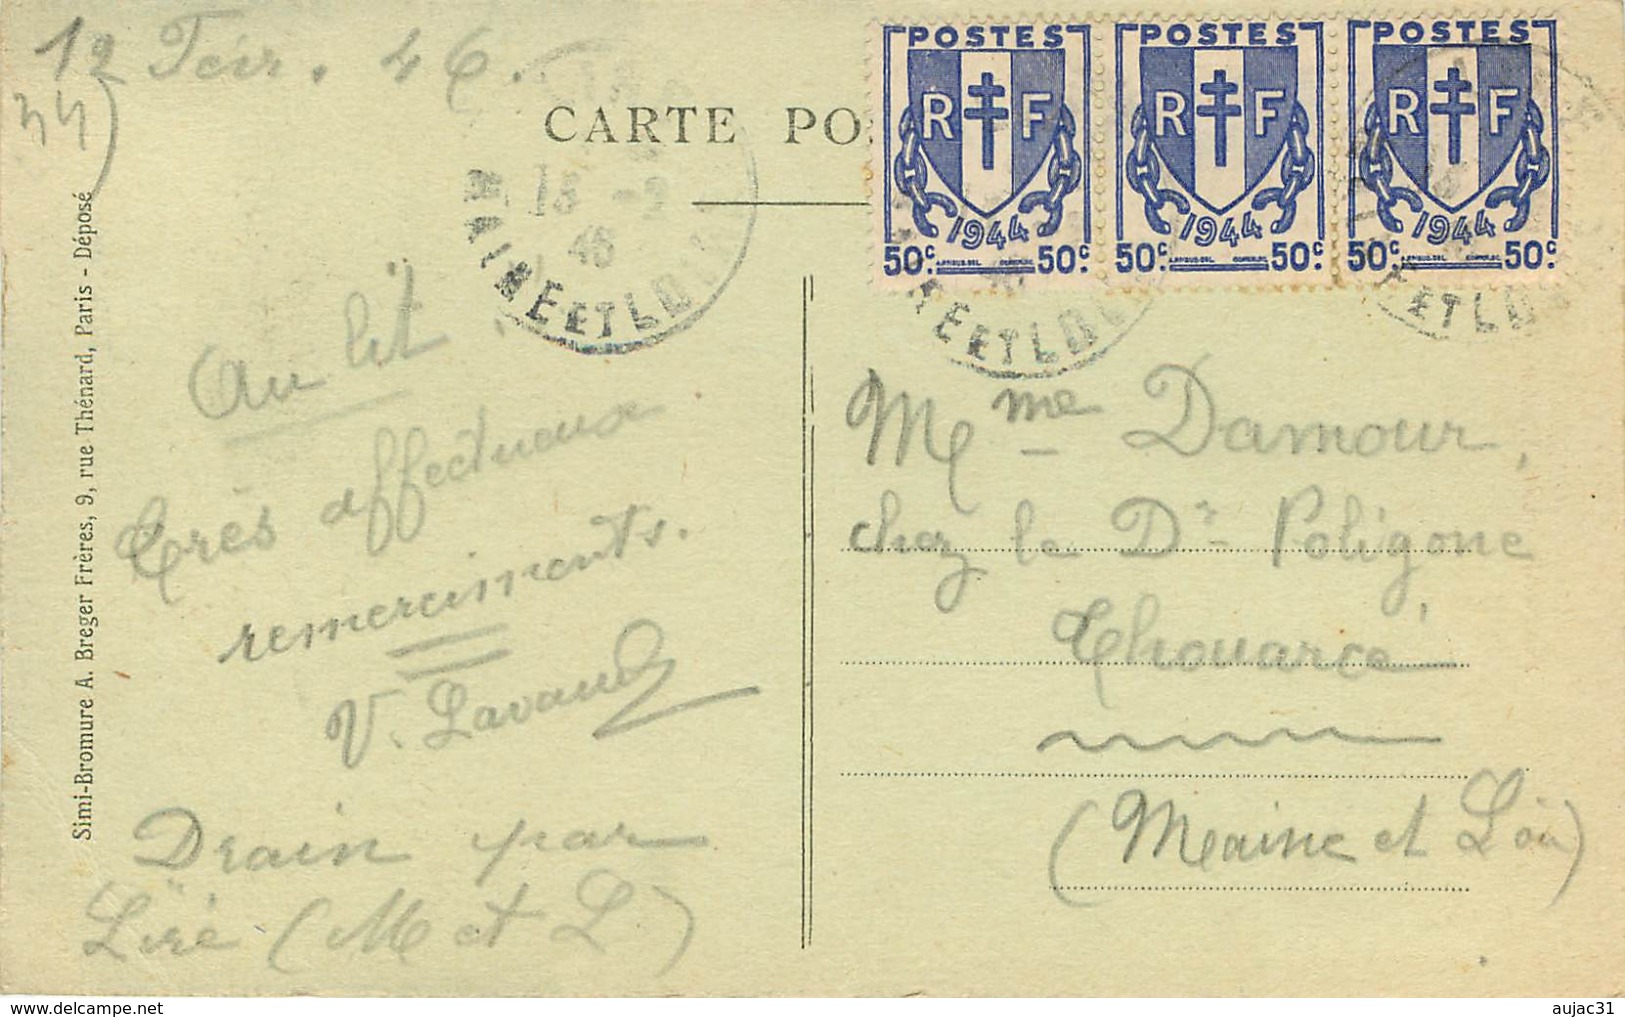 12 Févr. 46.
34)
CARTE PO
13 -2
46
MAINE ET LOI
POSTES POSTES POSTES
R F R F R F
1944 1944 1944
50c. 50c 50c. 50c 50c. 50c
EET LOI
EET LO
Simi-Bromure A. Breger Frères, 9, rue Thénard, Paris - Déposé
Au lit.
Très affectueux
remerciments.
V. Lavaud
Drain par
Liré (M et L.)
Mme Damour,
chez le Dr Poligone
Thouarcé,
(Maine et Loire)
aujac31